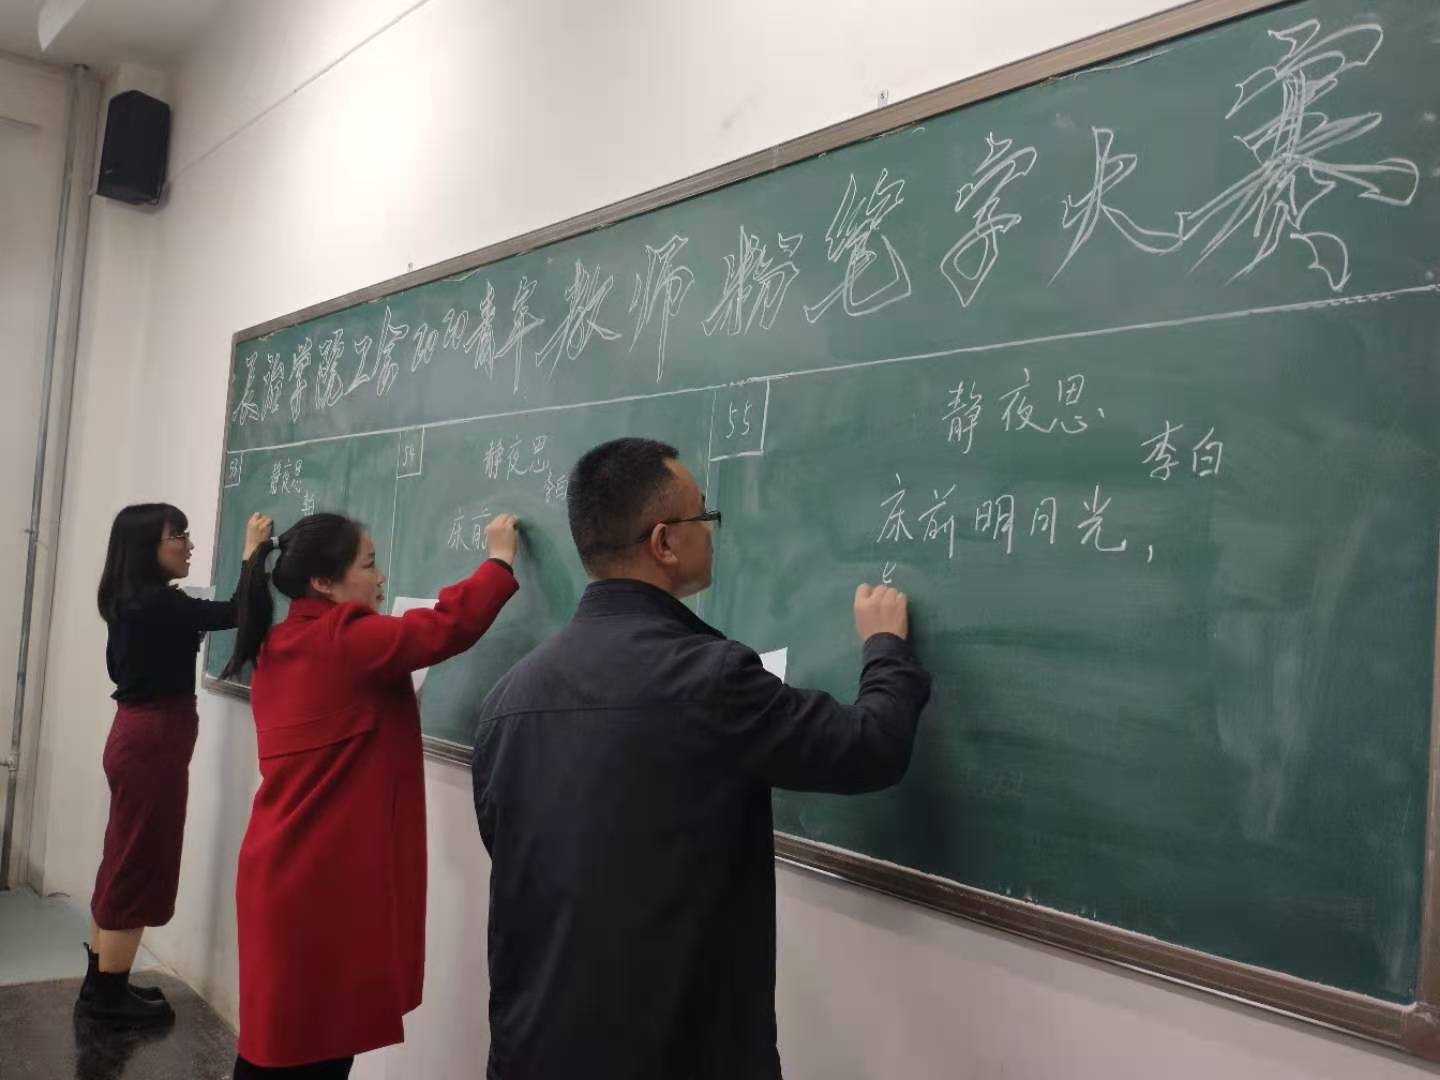 长治学院工会 青年教师粉笔字大赛
53
静夜思
54
静夜思
李白
床前
55
静夜思
李白
床前明月光，